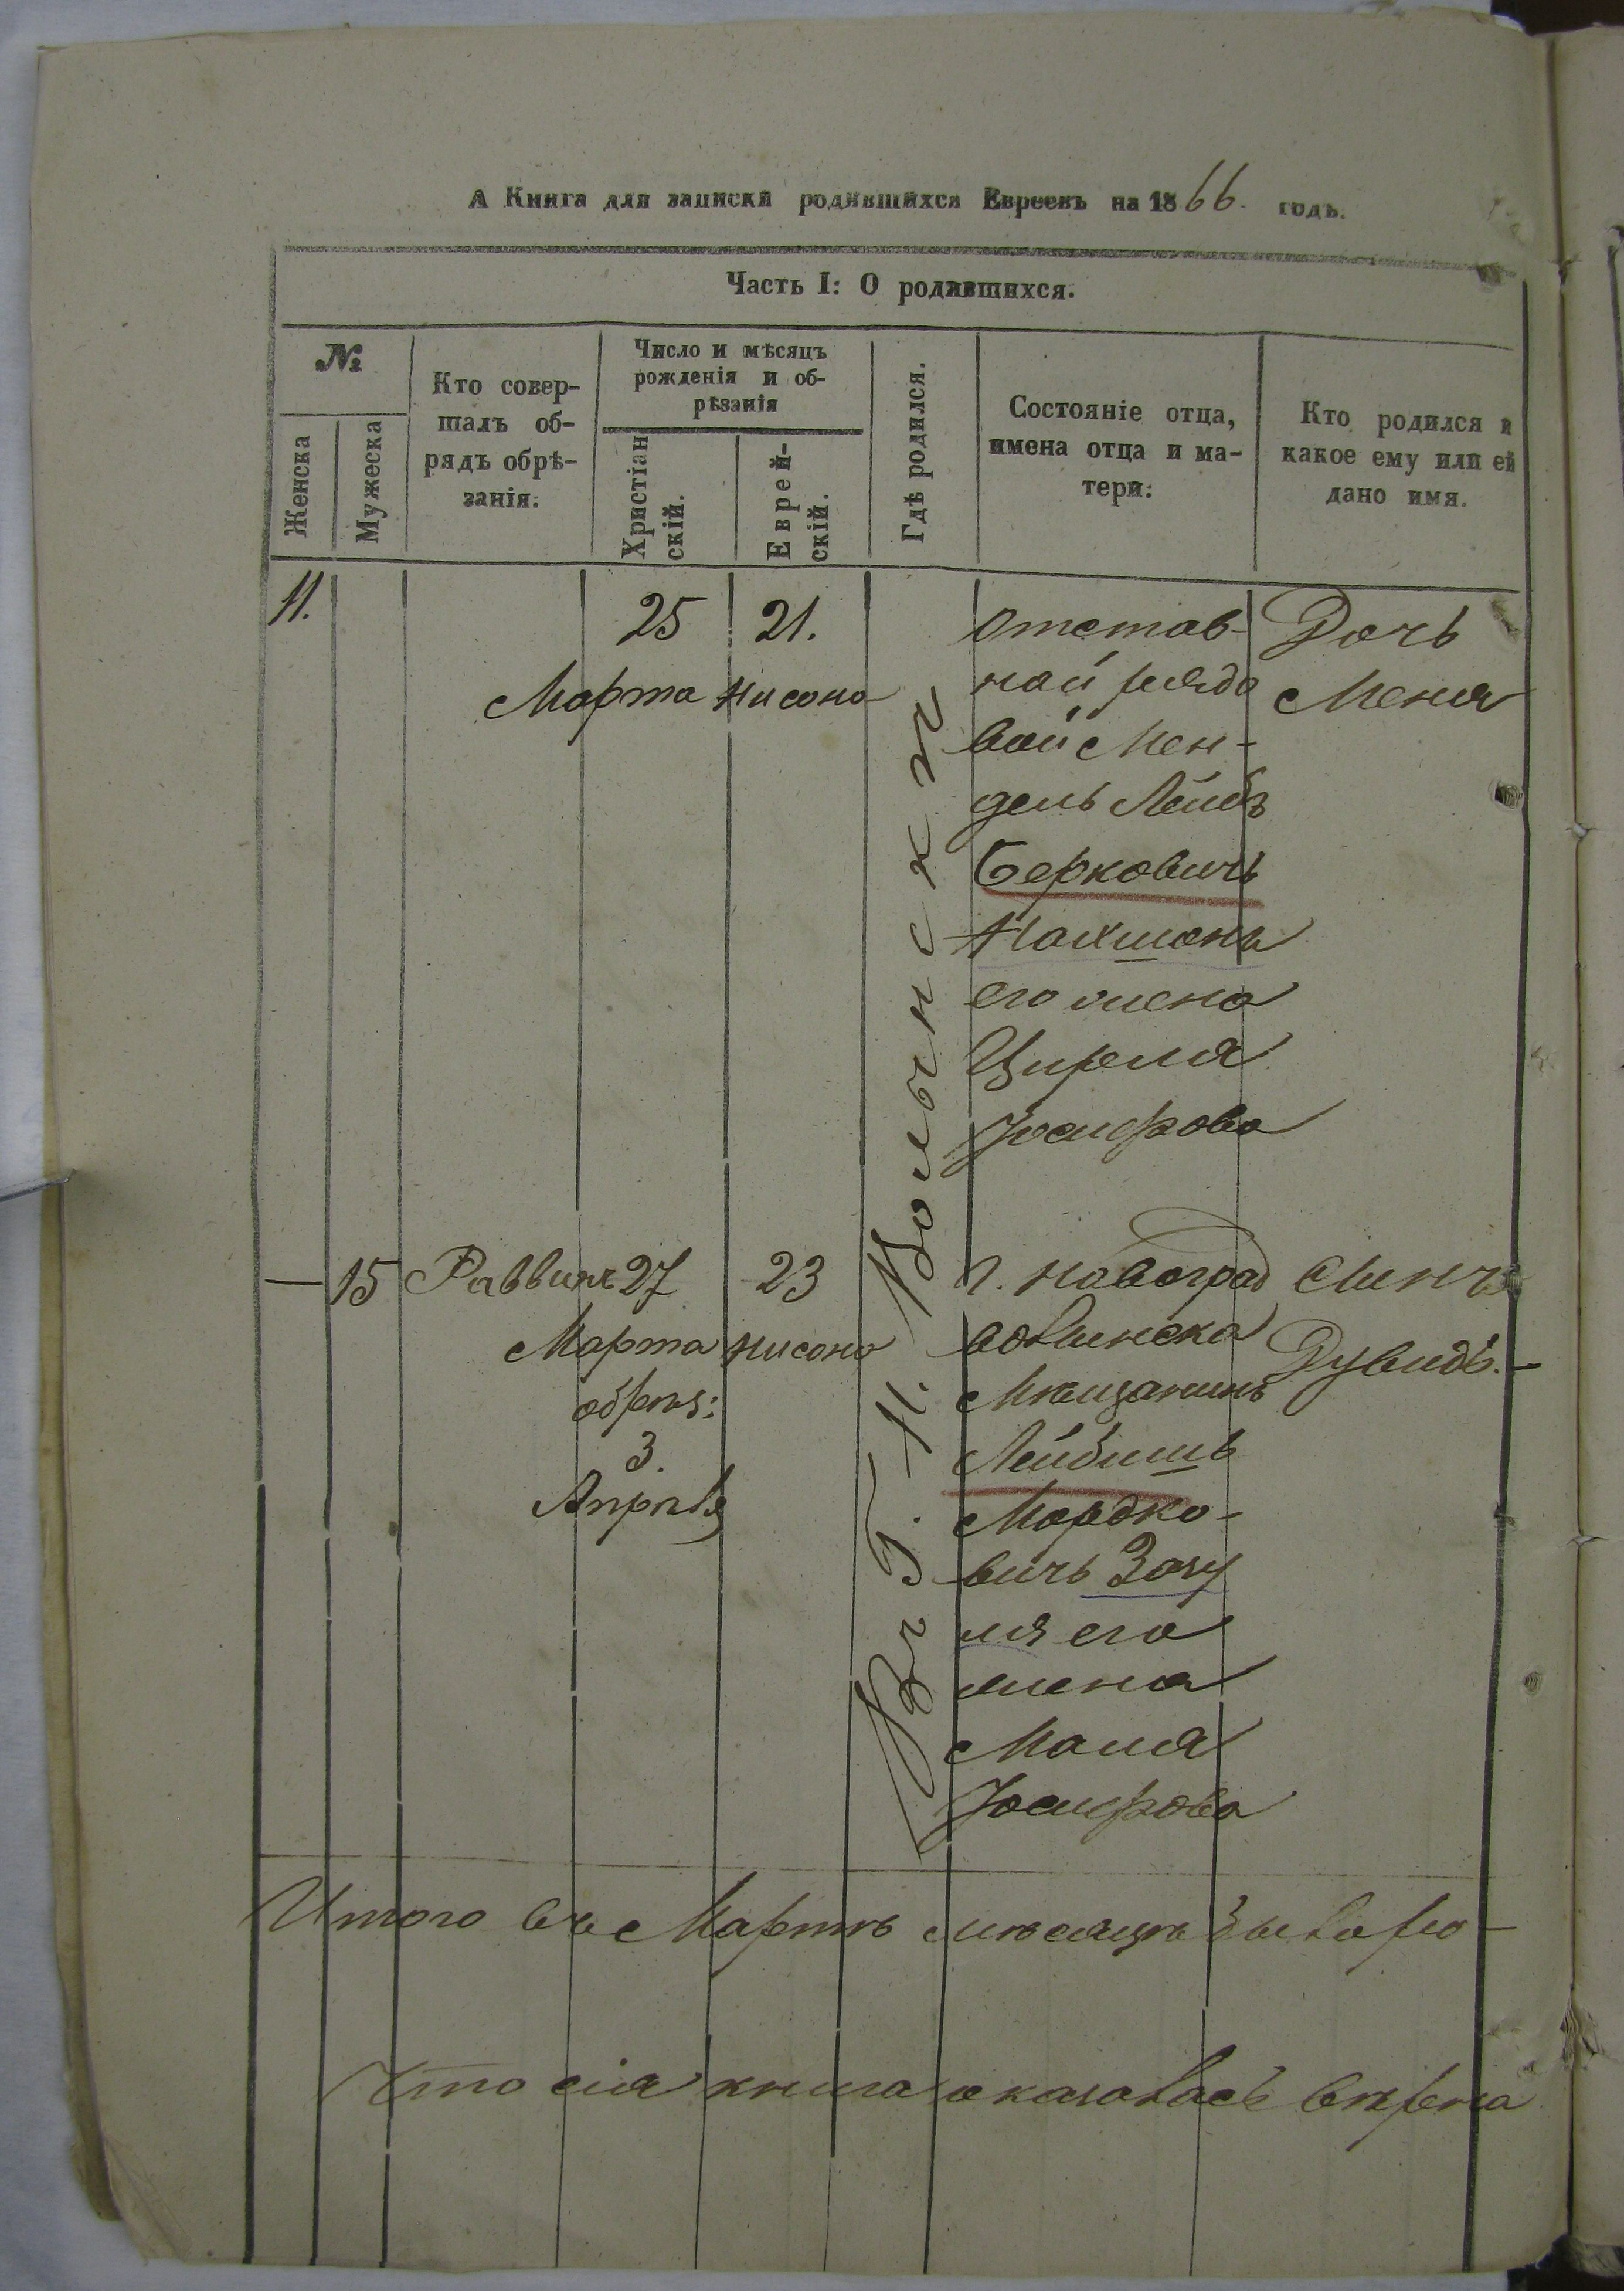 А Книга для записки родившихся Евреевъ на 1866. годъ.
Часть I: О родившихся.
№
Женска
Мужеска
Кто совер-
шалъ об-
рядъ обрѣ-
занія.
Число и мѣсяцъ
рожденія и об-
рѣзанія
Христіан
скій.
Еврей-
скій.
Гдѣ родился.
Состояніе отца,
имена отца и ма-
тери:
Кто родился и
какое ему или ей
дано имя.
11.
25
Марта
21.
Нисона
Въ Г. Н. Волынскѣ
Отстав-
ной рядо
вой Мен-
дель Лейбъ
Берковичъ
Нахшонъ
его жена
Цирля
Іосифова
Дочь
Меня
— 15
Раввинъ
27
Марта
обрѣз:
3.
Апрѣля
23
Нисона
г. Новоград
волынска
Мѣщанинъ
Лейбишъ
Мордко-
вичъ Зозу
ля его
жена
Маля
Іосифова
Сынъ
Дувидъ. —
Итого въ Мартѣ мѣсяцѣ было ро-
Что сія книга оказалась вѣрна